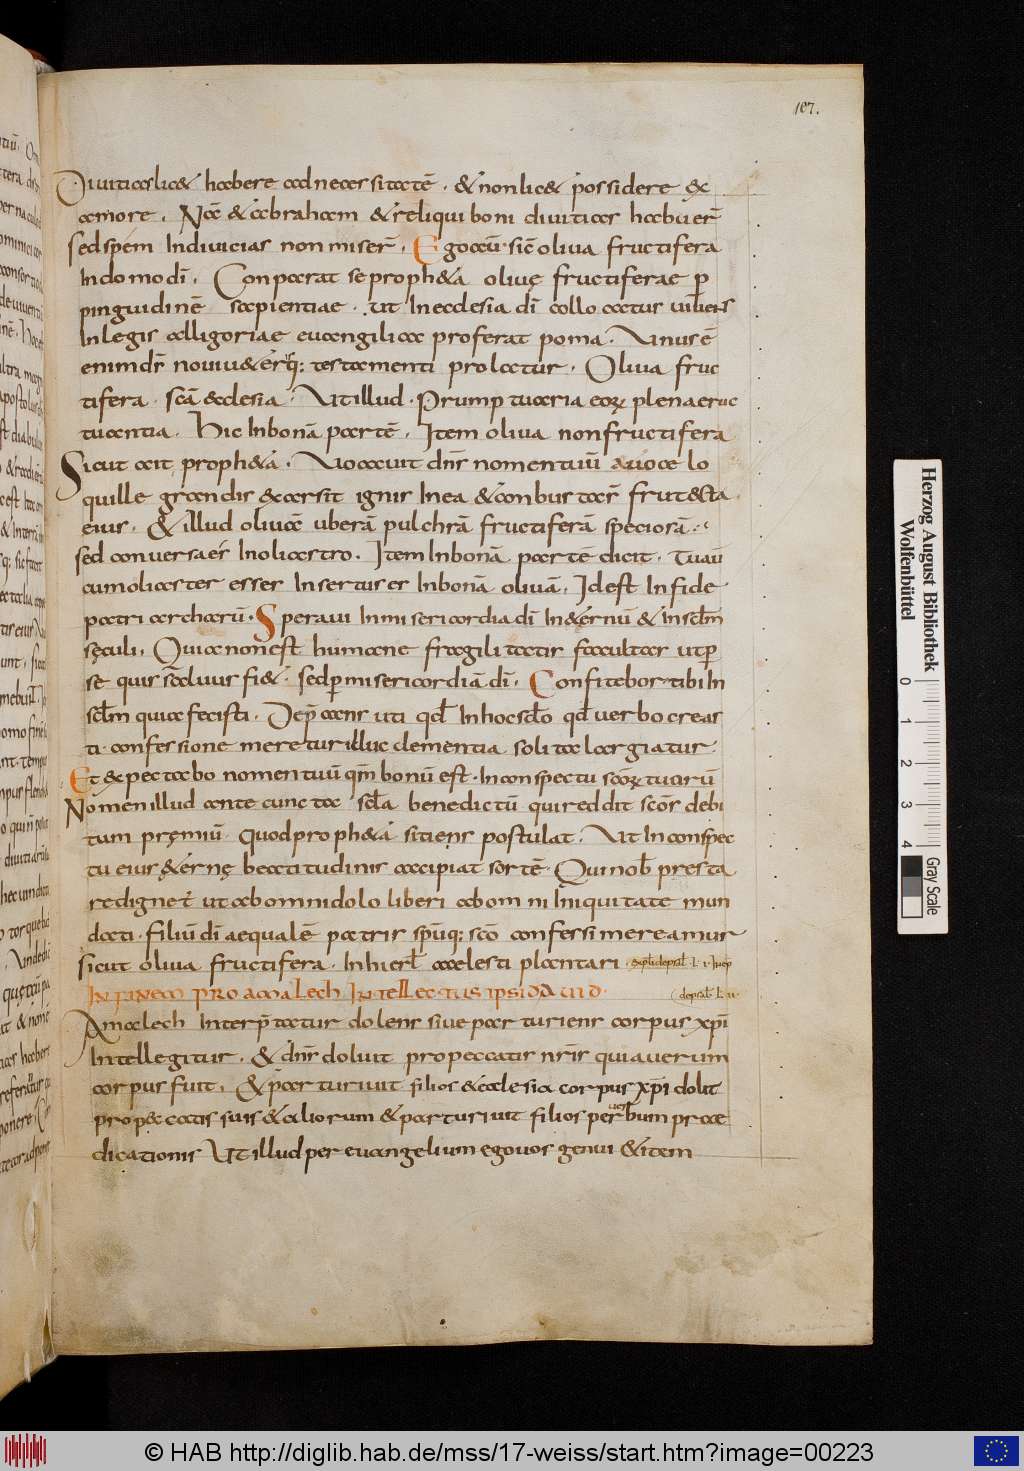 107.
Diuitias lic& habere ad necessitatē · & non lic& possidere ex
amore · Noē & abraham & reliqui boni diuitias habuer̄
sed spem In diuicias non miser̄ · Ego autē sic̄ oliua fructifera
In domo dī · Conparat se proph&a oliuę fructiferae p
pinguidinē sapientiae · ut In ecclesia dī collocatus
In legis alligoriae euangilicae proferat poma · Unus ē
enim dn̄s noui & ueterisq; testamenti prolatur · Oliua fruc
tifera · sc̄a ecclesia · Ut illud · Prumptuaria eoꝝ plena eruc
tuantia · Hic In bonā partē · Item oliua non fructifera
Sicut ait proph&a · Uocauit dn̄s nomen tuū a uoce lo
quille grandis exarsit ignis In ea & conbusta sr̄ frut&ta
eius · & illud oliuā uberā pulchrā fructiferā speciosā ·
sed conuersa ē In oliastro · Item In bonā partē dicit · Tu aū
cum oliaster esses Insertus es In bonā oliuā · Id est In fide
patriarcharū · Speraui In misericordia dī In &ernū & In sclm̄
sęculi · Quia non est humane fragilitatis facultas ut p
se quis saluus fi& · sed p misericordiā dī · Confitebor tibi In
sclm̄ quia fecisti · Dep̄cans uti qd̄ In hoc sclo qd̄ uerbo creas
ti · confessione meretur illuc clementia solita largiatur
Et expectabo nomen tuū qm̄ bonū est · In conspectu sanctoꝝ tuorū
Nomen illud ante cuncta scla benedictū qui reddit scōs debi
tum pręmiū · quod proph&a sitiens postulat · Ut In conspec
tu eius &ernę beatitudinis accipiat sortē · Qui nob̄ presta
re dignet ut ab omni dolo liberi ab omni Iniquitate mun
dati · filiū dī aequalē patris spūq; sco confessi mereamur
sicut oliua fructifera · In hierl̄ caelesti plantari ·
IN FINEM PRO AMALECH INTELLECTUS IPSI DAUID ·
Amalech Interp̄tatur dolens siue parturiens corpus xp̄i
Intellegitur · & dn̄s doluit pro peccatis nr̄is quia uerum
corpus fuit · & parturiuit filios & ecclesia corpus xp̄i dolit
pro peccatis suis & aliorum & parturiuit filios per uerbum prae
dicationis Ut illud per euangelium ego uos genui & item
Herzog August Bibliothek
Wolfenbüttel
0 1 2 3 4
Gray Scale
© HAB http://diglib.hab.de/mss/17-weiss/start.htm?image=00223